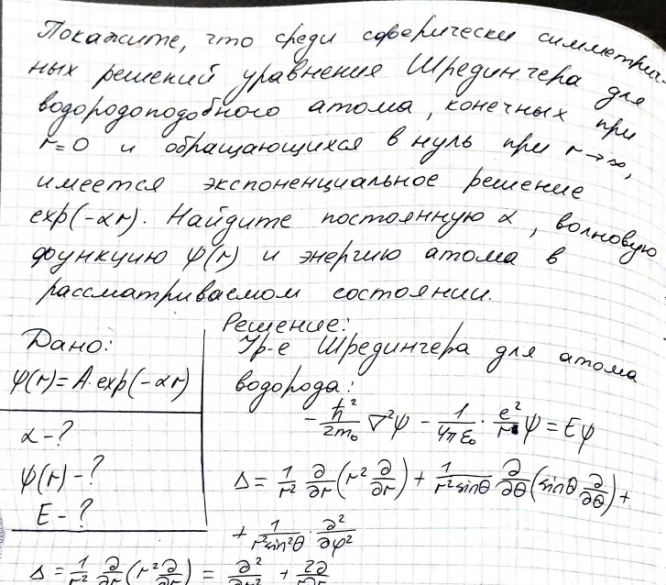 Покажите, что среди сферически симметрич-
ных решений уравнения Шредингера для
водородоподобного атома, конечных при
r=0 и обращающихся в нуль при r→∞,
имеется экспоненциальное решение
exp(-αr). Найдите постоянную α, волновую
функцию ψ(r) и энергию атома в
рассматриваемом состоянии.
Решение:
Дано:
ψ(r)=A·exp(-αr)
α-?
ψ(r)-?
E-?
Ур-е Шредингера для атома
водорода:
-ħ²/2m₀ ∇²ψ - 1/4πε₀ · e²/r ψ = Eψ
Δ = 1/r² ∂/∂r (r² ∂/∂r) + 1/r²sinθ ∂/∂θ (sinθ ∂/∂θ) +
+ 1/r²sin²θ · ∂²/∂φ²
Δ = 1/r² ∂/∂r (r² ∂/∂r) = ∂²/∂r² + 2∂/r∂r